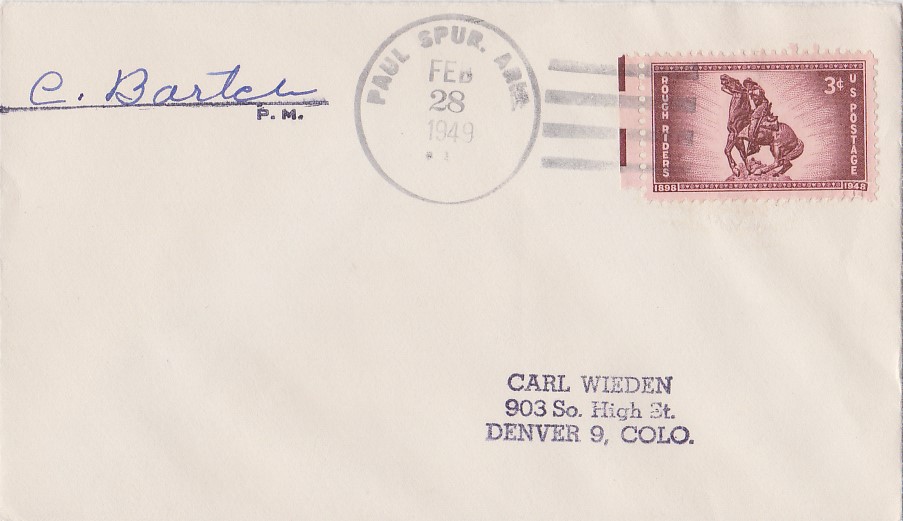 C. Bartch
P. M.
PAUL SPUR. ARIZ.
FEB
28
1949
ROUGH RIDERS
3¢
U S POSTAGE
1898
1948
CARL WIEDEN
903 So. High St.
DENVER 9, COLO.